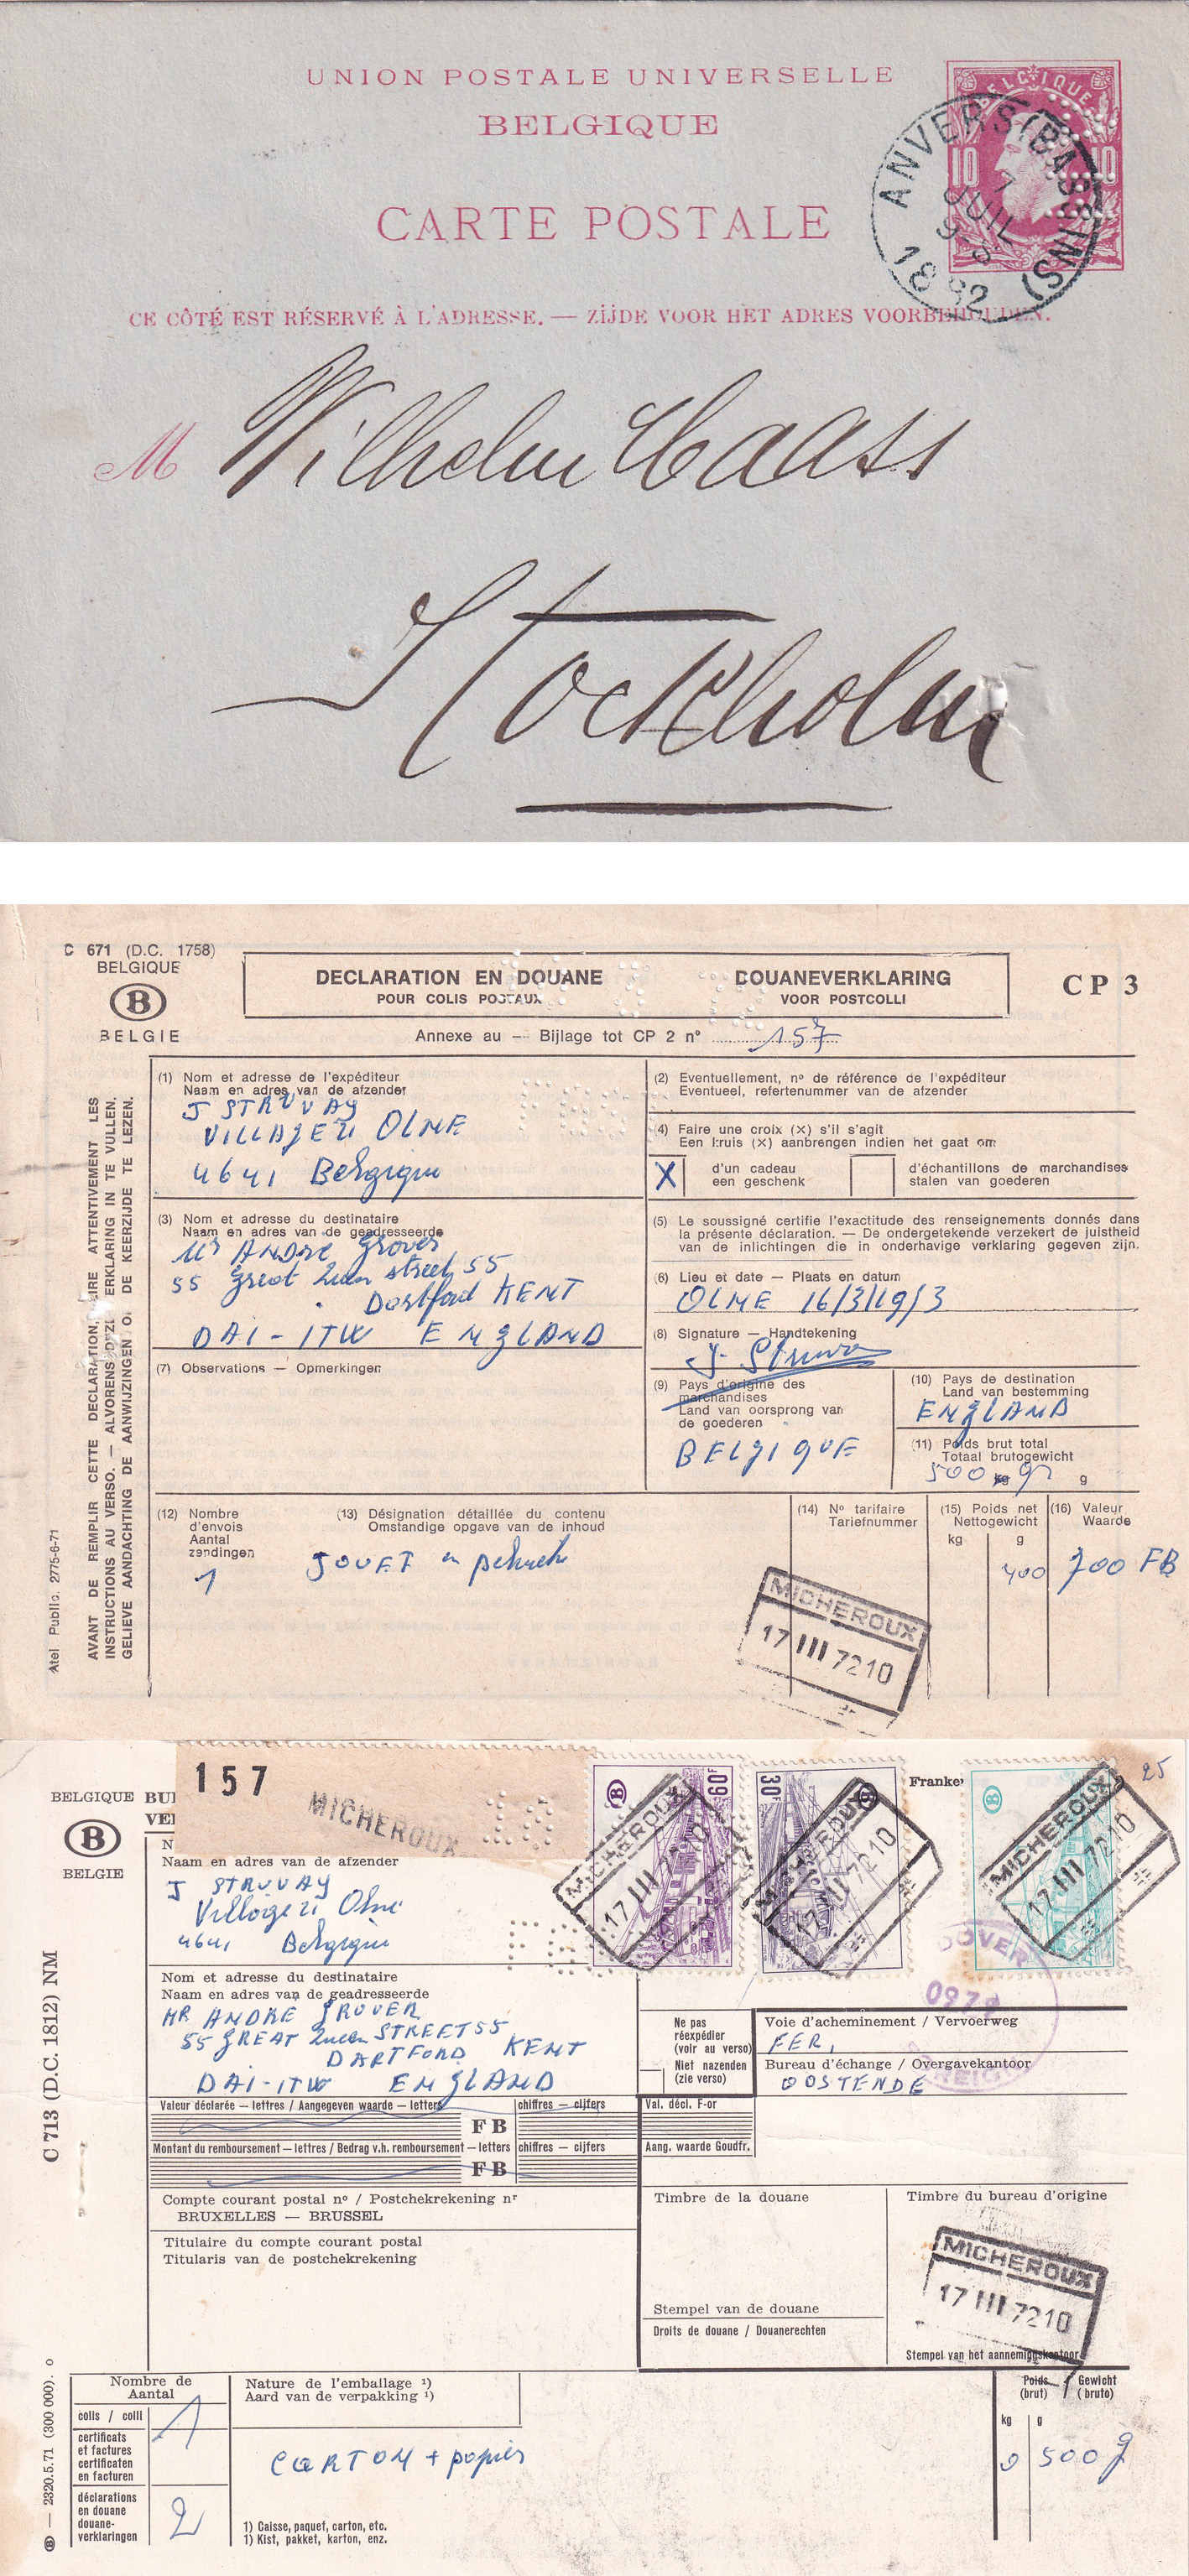 UNION POSTALE UNIVERSELLE
BELGIQUE
CARTE POSTALE
BELGIQUE
10 10
ANVERS (BASSINS)
7
JUIL
9-S
1882
CE CÔTÉ EST RÉSERVÉ À L'ADRESSE. — ZIJDE VOOR HET ADRES VOORBEHOUDEN.
M Wilhelm Haass
Stockholm
C 671 (D.C. 1758)
BELGIQUE
B
BELGIE
DECLARATION EN DOUANE
POUR COLIS POSTAUX
DOUANEVERKLARING
VOOR POSTCOLLI
CP 3
Annexe au — Bijlage tot CP 2 n° 157
AVANT DE REMPLIR CETTE DECLARATION, LIRE ATTENTIVEMENT LES
INSTRUCTIONS AU VERSO. — ALVORENS DEZE VERKLARING IN TE VULLEN,
GELIEVE AANDACHTING DE AANWIJZINGEN OP DE KEERZIJDE TE LEZEN.
Atel Public. 2775-6-71
(1) Nom et adresse de l'expéditeur
Naam en adres van de afzender
J STRUVAY
VILLAGE 21 OLNE
4641 Belgique
(2) Eventuellement, n° de référence de l'expéditeur
Eventueel, refertenummer van de afzender
(4) Faire une croix (×) s'il s'agit
Een kruis (×) aanbrengen indien het gaat om
X
d'un cadeau
een geschenk
d'échantillons de marchandises
stalen van goederen
(3) Nom et adresse du destinataire
Naam en adres van de geadresseerde
Mr ANDRE Grover
55 Great Queen street 55
Dartford KENT
DAI-ITW ENGLAND
(5) Le soussigné certifie l'exactitude des renseignements donnés dans
la présente déclaration. — De ondergetekende verzekert de juistheid
van de inlichtingen die in onderhavige verklaring gegeven zijn.
(6) Lieu et date — Plaats en datum
OLNE 16/3/19/3
(8) Signature — Handtekening
(7) Observations — Opmerkingen
(9) Pays d'origine des
marchandises
Land van oorsprong van
de goederen
BELGIQUE
(10) Pays de destination
Land van bestemming
ENGLAND
(11) Poids brut total
Totaal brutogewicht
500 gr g
(12) Nombre
d'envois
Aantal
zendingen
1
(13) Désignation détaillée du contenu
Omstandige opgave van de inhoud
JOUET en peluche
(14) N° tarifaire
Tariefnummer
(15) Poids net
Nettogewicht
kg g
400
(16) Valeur
Waarde
700 FB
MICHEROUX
17 III 7210
BELGIQUE
B
BELGIE
157
MICHEROUX
60F
30F
B
MICHEROUX
17 III 7210
MICHEROUX
MICHEROUX
17 III 7210
25
Naam en adres van de afzender
J STRUVAY
Village 21 Olne
4641 Belgique
C 713 (D.C. 1812) NM
Nom et adresse du destinataire
Naam en adres van de geadresseerde
MR ANDRE GROVER
55 GREAT Queen STREET 55
DARTFORD KENT
DAI-ITW ENGLAND
DOVER
Ne pas
réexpédier
(voir au verso)
Niet nazenden
(zie verso)
Voie d'acheminement / Vervoerweg
FER,
Bureau d'échange / Overgavekantoor
OOSTENDE
Valeur déclarée — lettres / Aangegeven waarde — letters
chiffres — cijfers
FB
Montant du remboursement — lettres / Bedrag v.h. remboursement — letters
chiffres — cijfers
FB
Val. décl. F-or
Aang. waarde Goudfr.
Compte courant postal n° / Postchekrekening nr
BRUXELLES — BRUSSEL
Titulaire du compte courant postal
Titularis van de postchekrekening
Timbre de la douane
Stempel van de douane
Droits de douane / Douanerechten
Timbre du bureau d'origine
MICHEROUX
17 III 7210
Stempel van het aannemingskantoor
Nombre de
Aantal
colis / colli
1
certificats
et factures
certificaten
en facturen
déclarations
en douane
douane-
verklaringen
2
Nature de l'emballage 1)
Aard van de verpakking 1)
CARTON + papier
1) Caisse, paquet, carton, etc.
1) Kist, pakket, karton, enz.
Poids Gewicht
(brut) (bruto)
kg g
0 500 g
B — 2320.5.71 (300 000). o